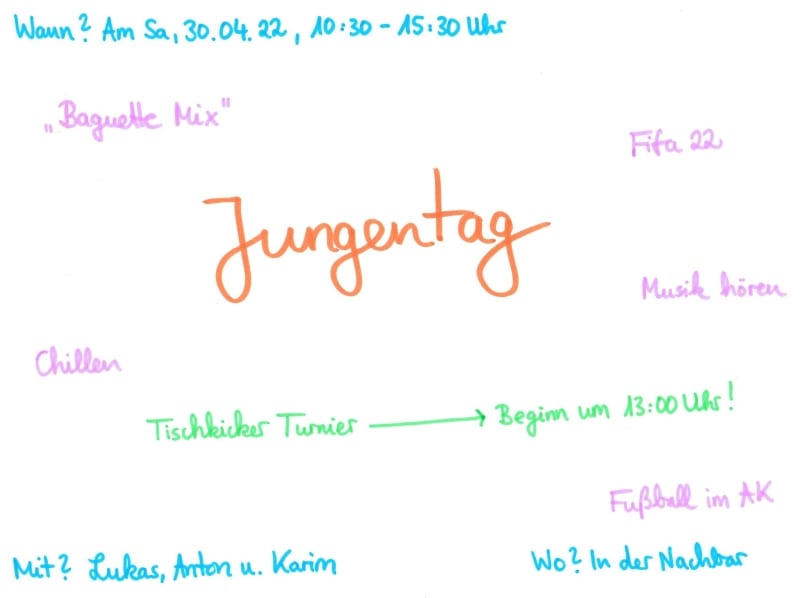 Wann? Am Sa, 30.04.22, 10:30 - 15:30 Uhr
„Baguette Mix"
Fifa 22
Jungentag
Musik hören
Chillen
Tischkicker Turnier → Beginn um 13:00 Uhr!
Fußball im AK
Mit? Lukas, Anton u. Karim
Wo? In der Nachbar